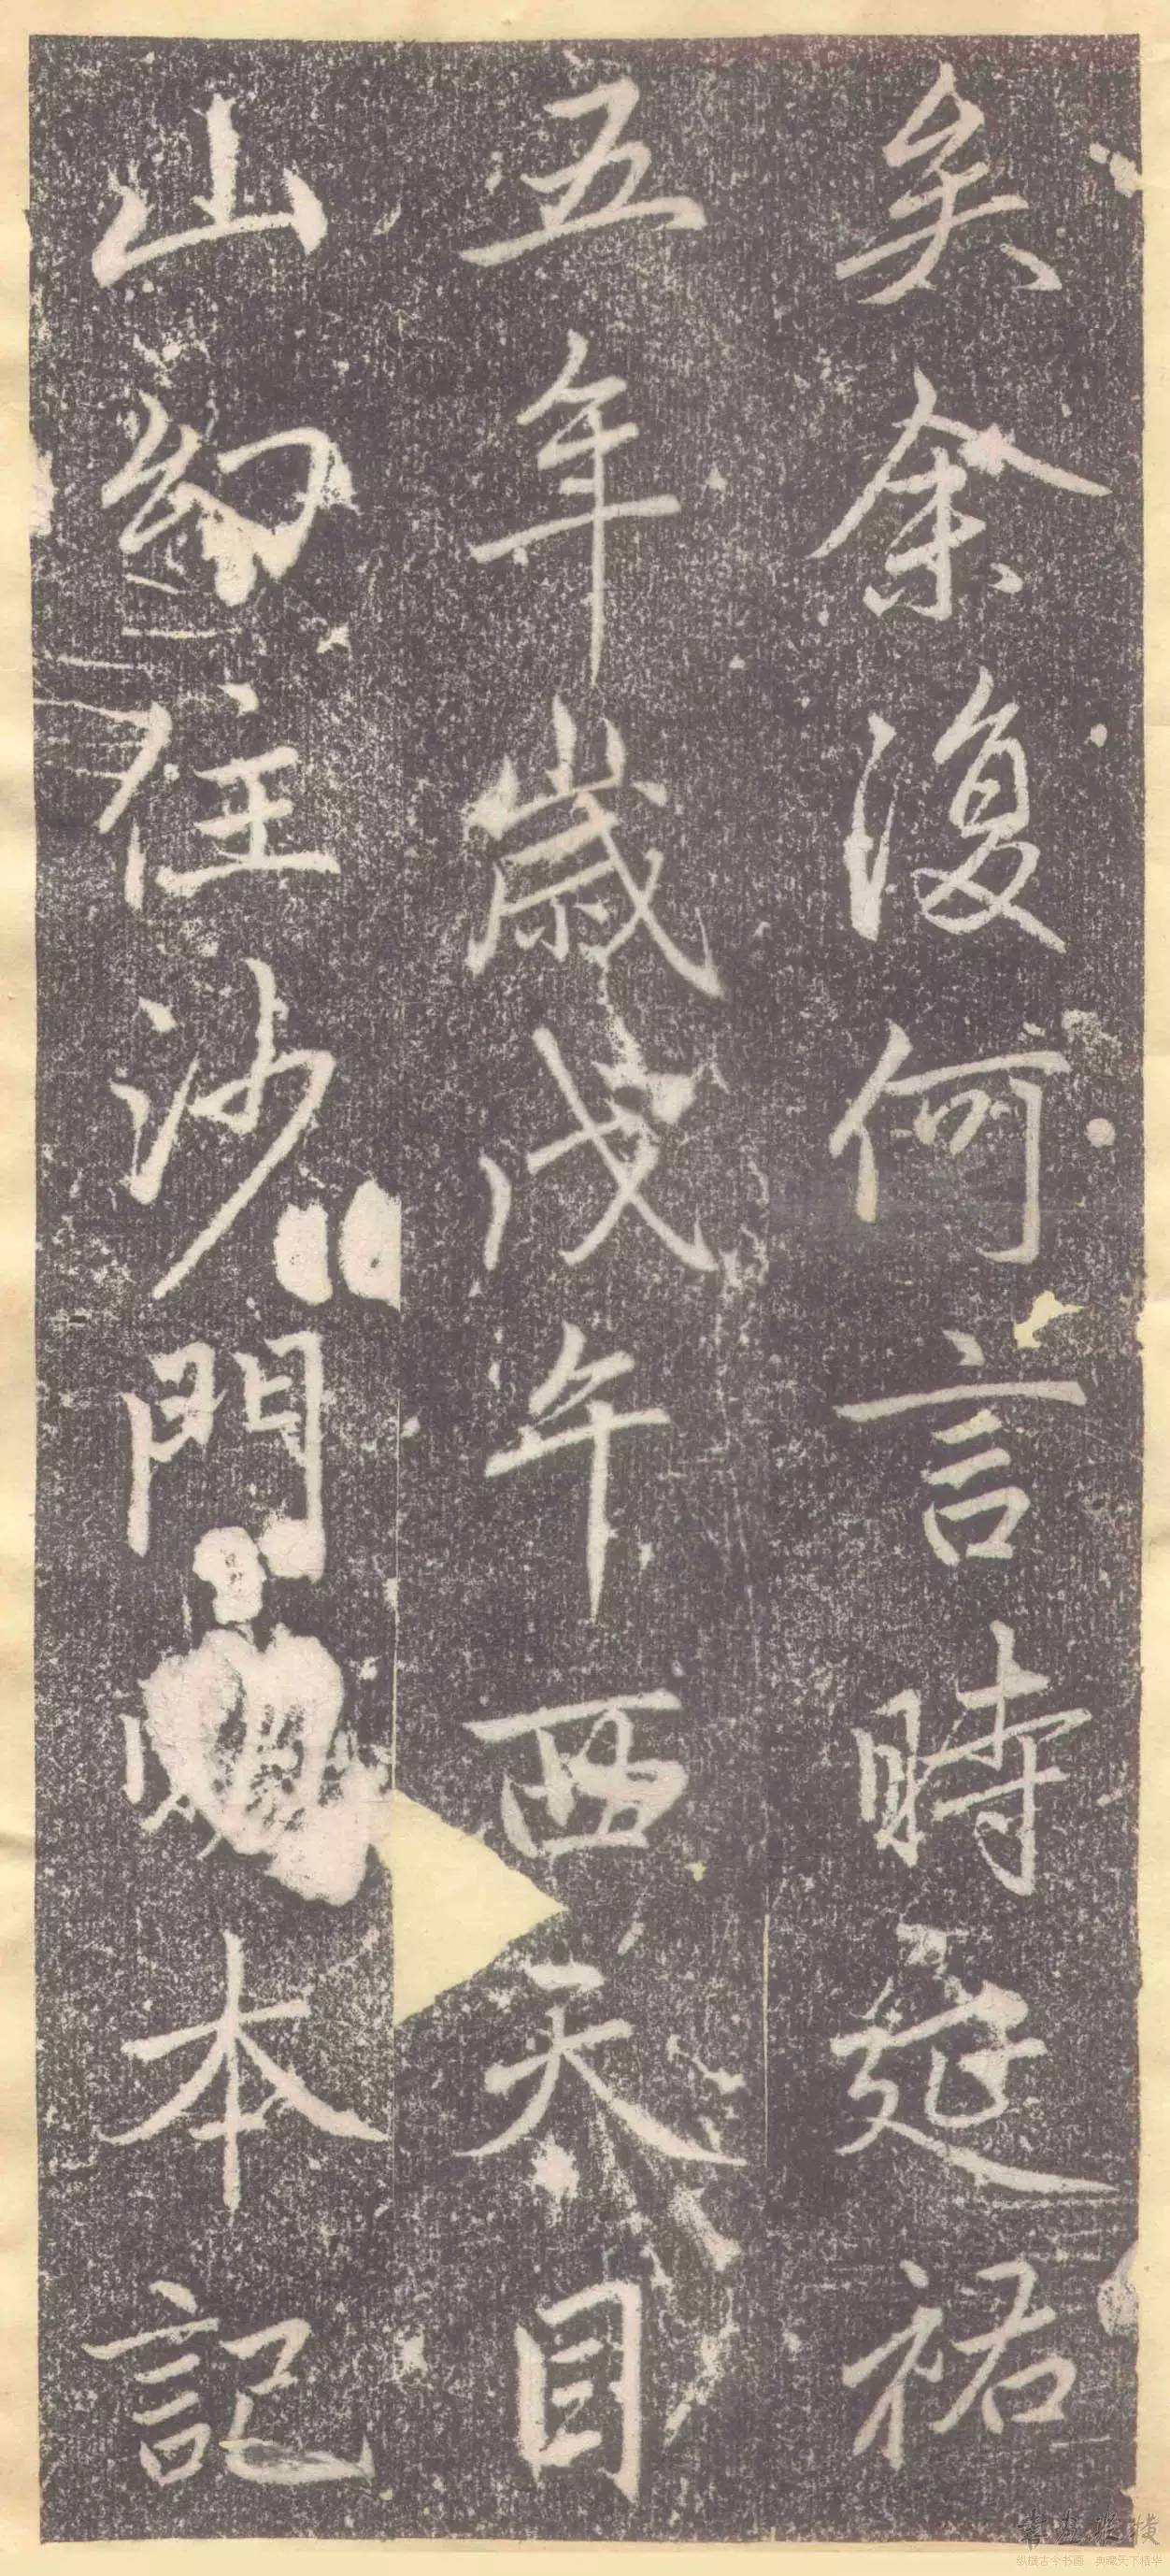 矣余復何言時延祐
五年歲戊午西天目
山幻住沙門明本記
書画纵横
纵横古今书画 典藏天下精华